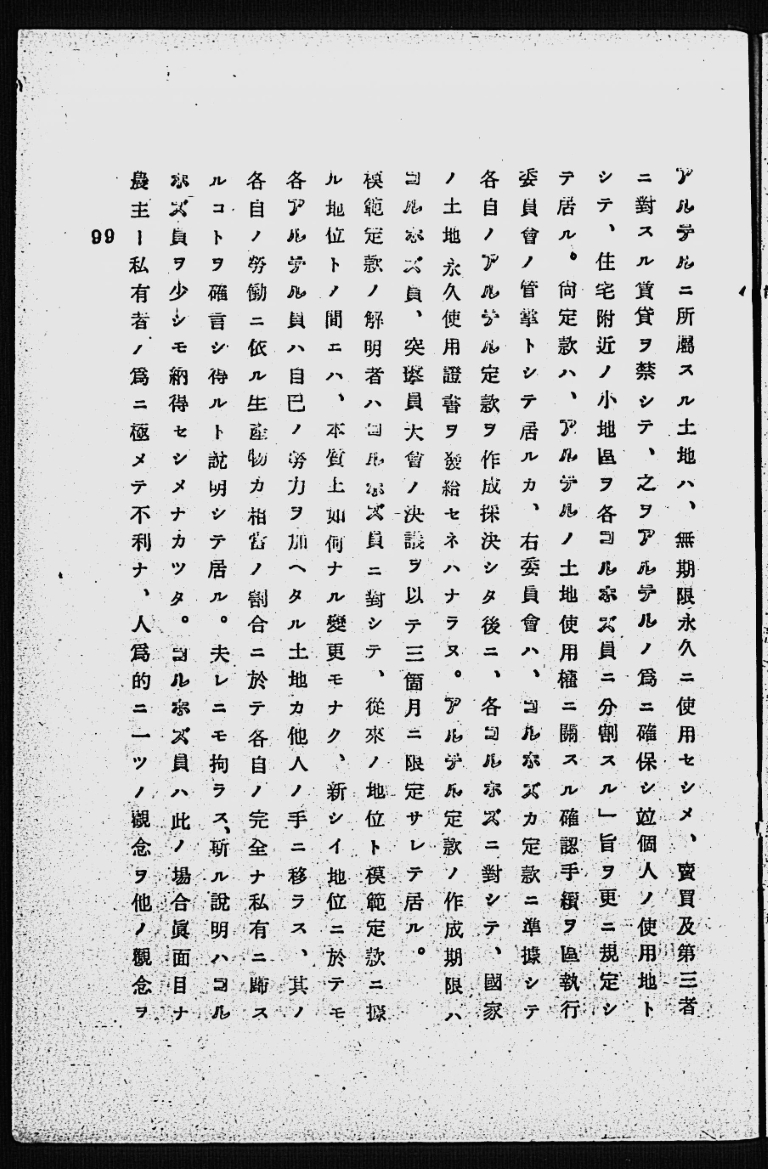 アルテルニ所屬スル土地ハ、無期限永久ニ使用セシメ、賣買及第三者
ニ對スル賃貸ヲ禁シテ、之ヲアルテルノ爲ニ確保シ竝個人ノ使用地ト
シテ、住宅附近ノ小地區ヲ各コルホズ員ニ分割スル」旨ヲ更ニ規定シ
テ居ル。尙定款ハ、アルテルノ土地使用權ニ關スル確認手續ヲ區執行
委員會ノ管掌トシテ居ルカ、右委員會ハ、コルホズカ定款ニ準據シテ
各自ノアルテル定款ヲ作成採決シタ後ニ、各コルホズニ對シテ、國家
ノ土地永久使用證書ヲ發給セネハナラヌ。アルテル定款ノ作成期限ハ
コルホズ員、突擊員大會ノ決議ヲ以テ三箇月ニ限定サレテ居ル。
模範定款ノ解明者ハコルホズ員ニ對シテ、從來ノ地位ト模範定款ニ據
ル地位トノ間ニハ、本質上如何ナル變更モナク、新シイ地位ニ於テモ
各アルテル員ハ自己ノ勞力ヲ加ヘタル土地カ他人ノ手ニ移ラス、其ノ
各自ノ勞働ニ依ル生產物カ相當ノ割合ニ於テ各自ノ完全ナ私有ニ歸ス
ルコトヲ確言シ得ルト說明シテ居ル。夫レニモ拘ラス、斯ル說明ハコル
ホズ員ヲ少シモ納得セシメナカツタ。コルホズ員ハ此ノ場合眞面目ナ
農主ー私有者ノ爲ニ極メテ不利ナ、人爲的ニ一ツノ觀念ヲ他ノ觀念ヲ
99